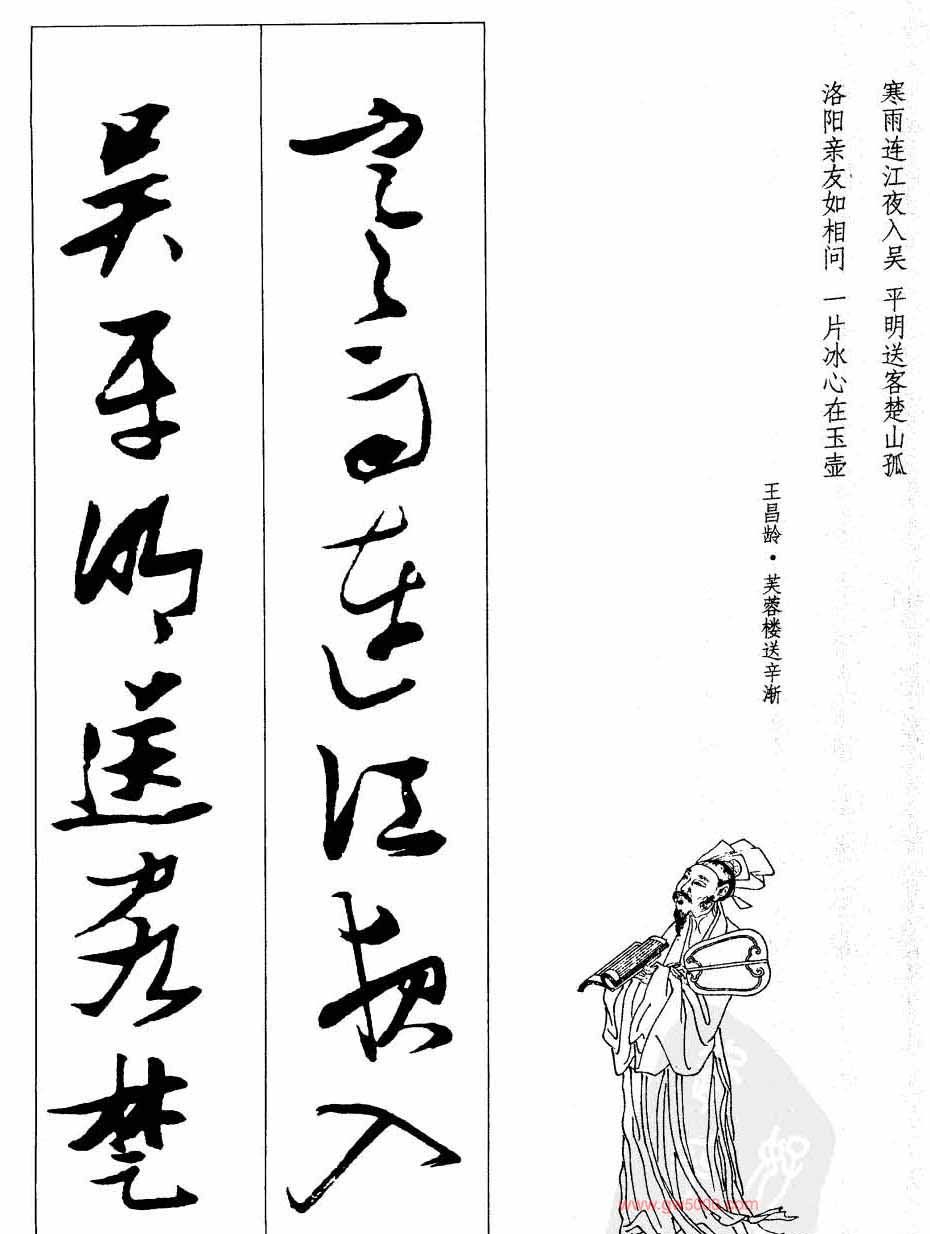 寒雨连江夜入吴 平明送客楚山孤
洛阳亲友如相问 一片冰心在玉壶
王昌龄·芙蓉楼送辛渐
寒雨连江夜入
吴平明送客楚
www.gw5000.com